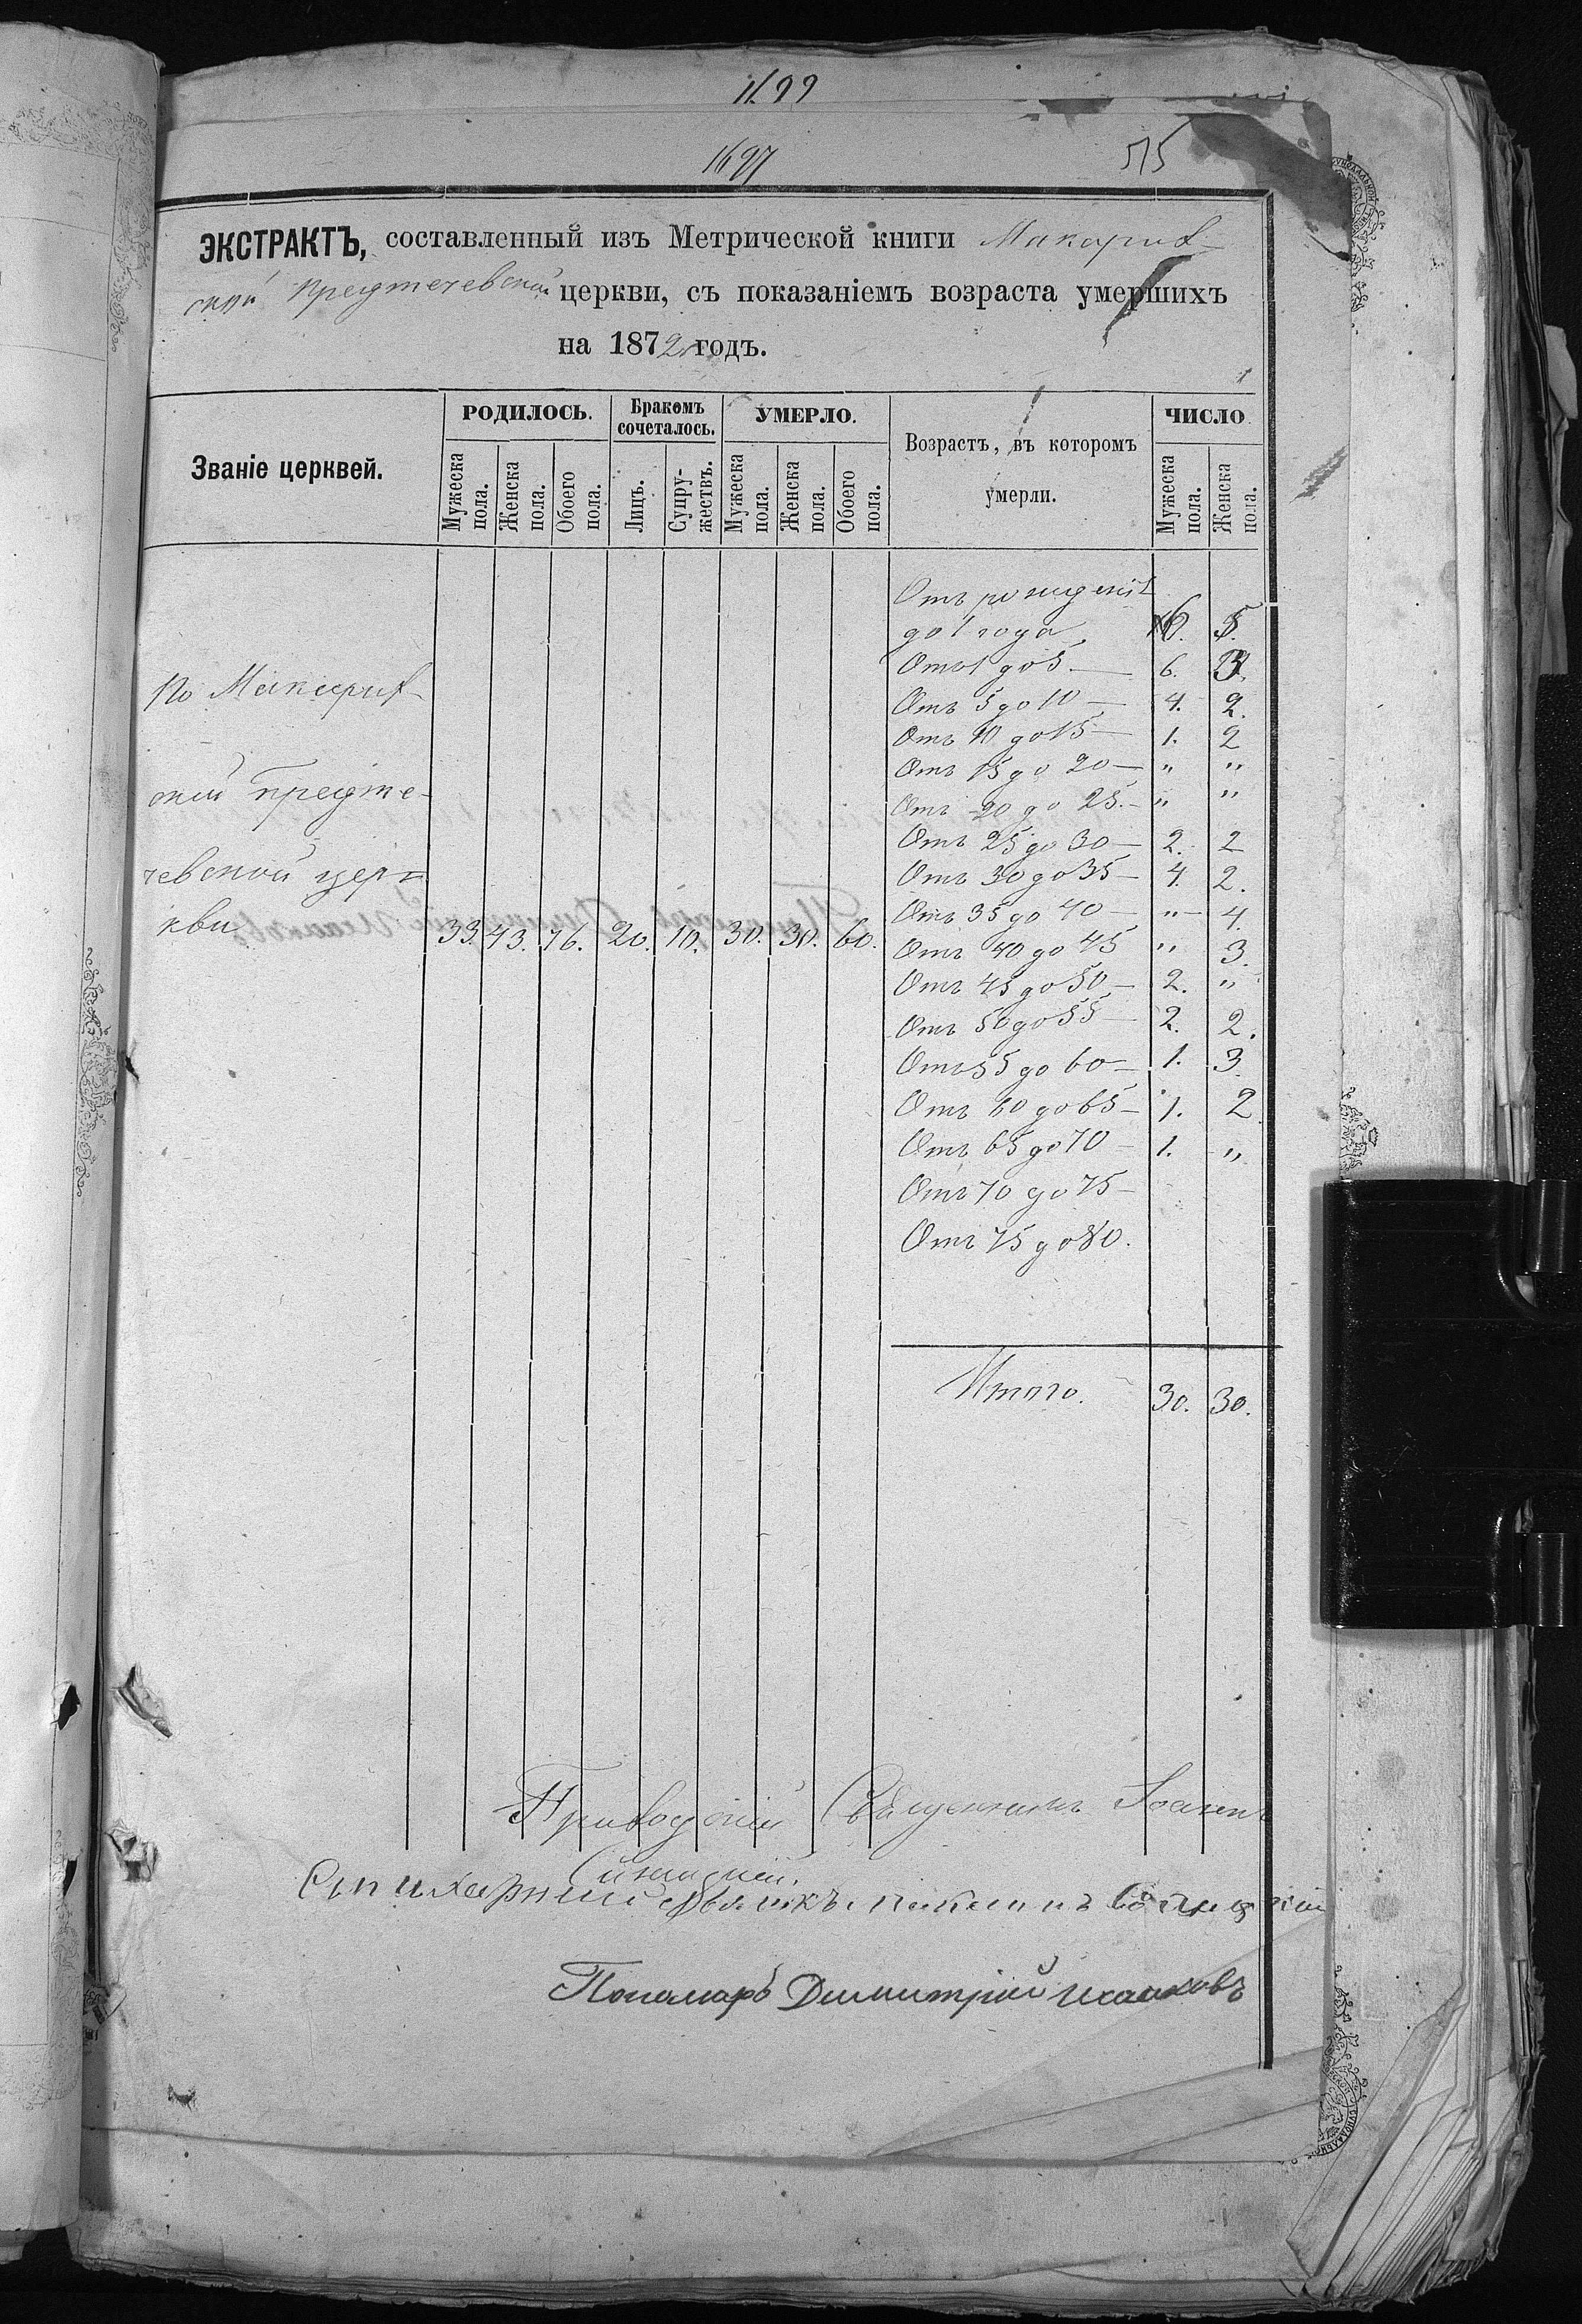 1699
1697
515
ЭКСТРАКТЪ, составленный изъ Метрической книги Макарiев-
ской Предтечевской церкви, съ показаніемъ возраста умершихъ
на 1872 годъ.
Званіе церквей.
РОДИЛОСЬ.
Бракомъ сочеталось.
УМЕРЛО.
Возрастъ, въ которомъ умерли.
ЧИСЛО
Мужеска пола.
Женска пола.
Обоего пола.
Лицъ.
Супружествъ.
Мужеска пола.
Женска пола.
Обоего пола.
Мужеска пола.
Женска пола.
Отъ рожденія
до 1 года 6. 5.
Отъ 1 до 5 — 6. 3.
Отъ 5 до 10 — 4. 2.
Отъ 10 до 15 — 1. 2
Отъ 15 до 20 — " "
Отъ 20 до 25. — " "
Отъ 25 до 30 — 2. 2
Отъ 30 до 35 — 4. 2.
Отъ 35 до 40 — " — 4.
Отъ 40 до 45 " 3.
Отъ 45 до 50 — 2. "
Отъ 50 до 55 — 2. 2.
Отъ 55 до 60 — 1. 3
Отъ 60 до 65 — 1. 2
Отъ 65 до 70 — 1. "
Отъ 70 до 75 —
Отъ 75 до 80.
По Макарiев-
ской Предте-
чевской цер-
кви 33. 43. 76. 20. 10. 30. 30. 60.
Итого. 30. 30.
Приходскій Священникъ Іоаннъ
Пономарь Димитрій Исаковъ